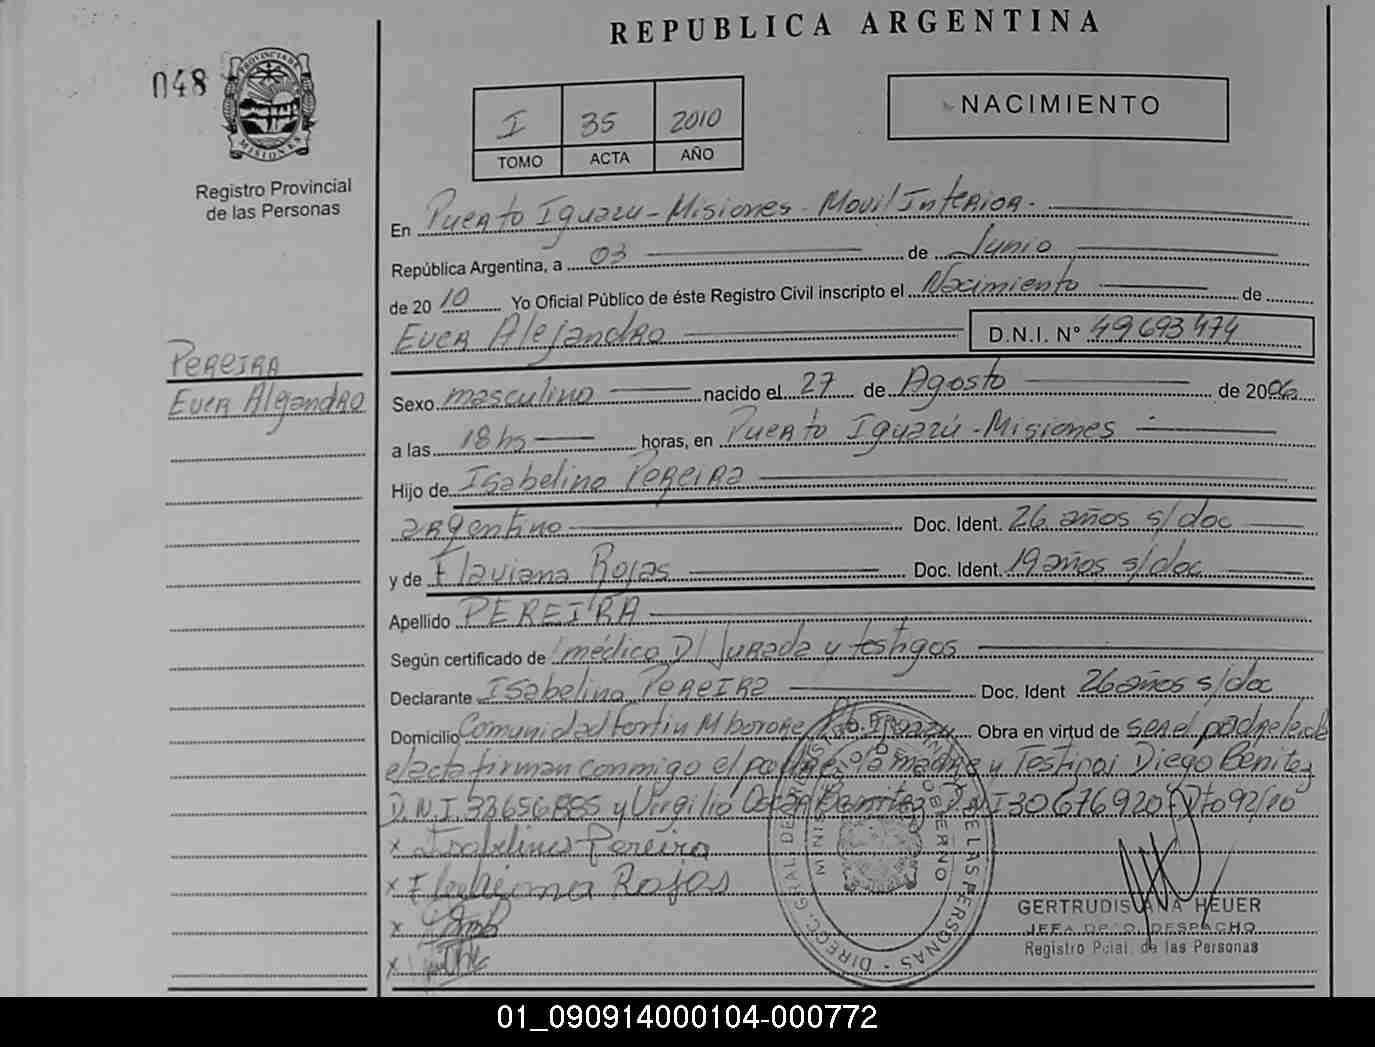 REPUBLICA ARGENTINA
048
PROVINCIA DE MISIONES
Registro Provincial
de las Personas
I 35 2010
TOMO ACTA AÑO
NACIMIENTO
En Puerto Iguazu - Misiones - Movil Interior.
República Argentina, a 03 de Junio
de 2010 Yo Oficial Público de éste Registro Civil inscripto el Nacimiento de
Ever Alejandro D.N.I. Nº 49693474
PEREIRA
Ever Alejandro
Sexo masculino nacido el 27 de Agosto de 2006
a las 18 hs horas, en Puerto Iguazú - Misiones
Hijo de Isabelino Pereira
argentino Doc. Ident. 26 años s/doc
y de Flaviana Rojas Doc. Ident. 19 años s/doc
Apellido PEREIRA
Según certificado de médico D/ Jurada y testigos
Declarante Isabelino Pereira Doc. Ident 26 años s/doc
Domicilio Comunidad Fortin Mborore Pto Iguazu Obra en virtud de ser el padre leida
el acta firman conmigo el padre la madre y Testigos Diego Benitez
D.N.I. 33656885 y Virgilio Oscar Benitez D.N.I 30676920 Dto 92/10
x Isabelino Pereira
x Flaviana Rojas
x
x
DIRECC. GRAL. DEL REGISTRO PROVINCIAL DE LAS PERSONAS
MINISTERIO DE GOBIERNO
GERTRUDIS ANA HEUER
JEFA DPTO. DESPACHO
Registro Pcial. de las Personas
01_090914000104-000772